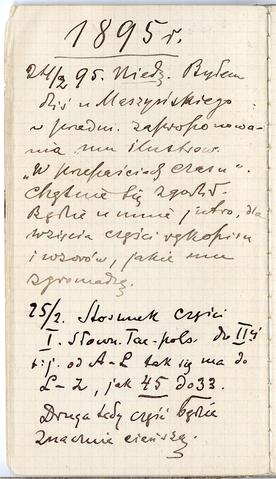 1895 r.
24/2 95. Niedz. Byłem
dziś u Maszyńskiego
w przedm. zaproponowa-
nia mu ilustrow.
„W przepaściach czasu".
Chętnie się zgodził.
Będzie u mnie jutro, dla
wzięcia części rękopisu
i wzorów, jakie mu
zgromadzę.
25/2. Stosunek części
I. Słown. Łac-pols. do IIéj
t.j. od A-L tak się ma do
L-Z, jak 45 do 33.
Druga tedy część będzie
znacznie cieńszą.